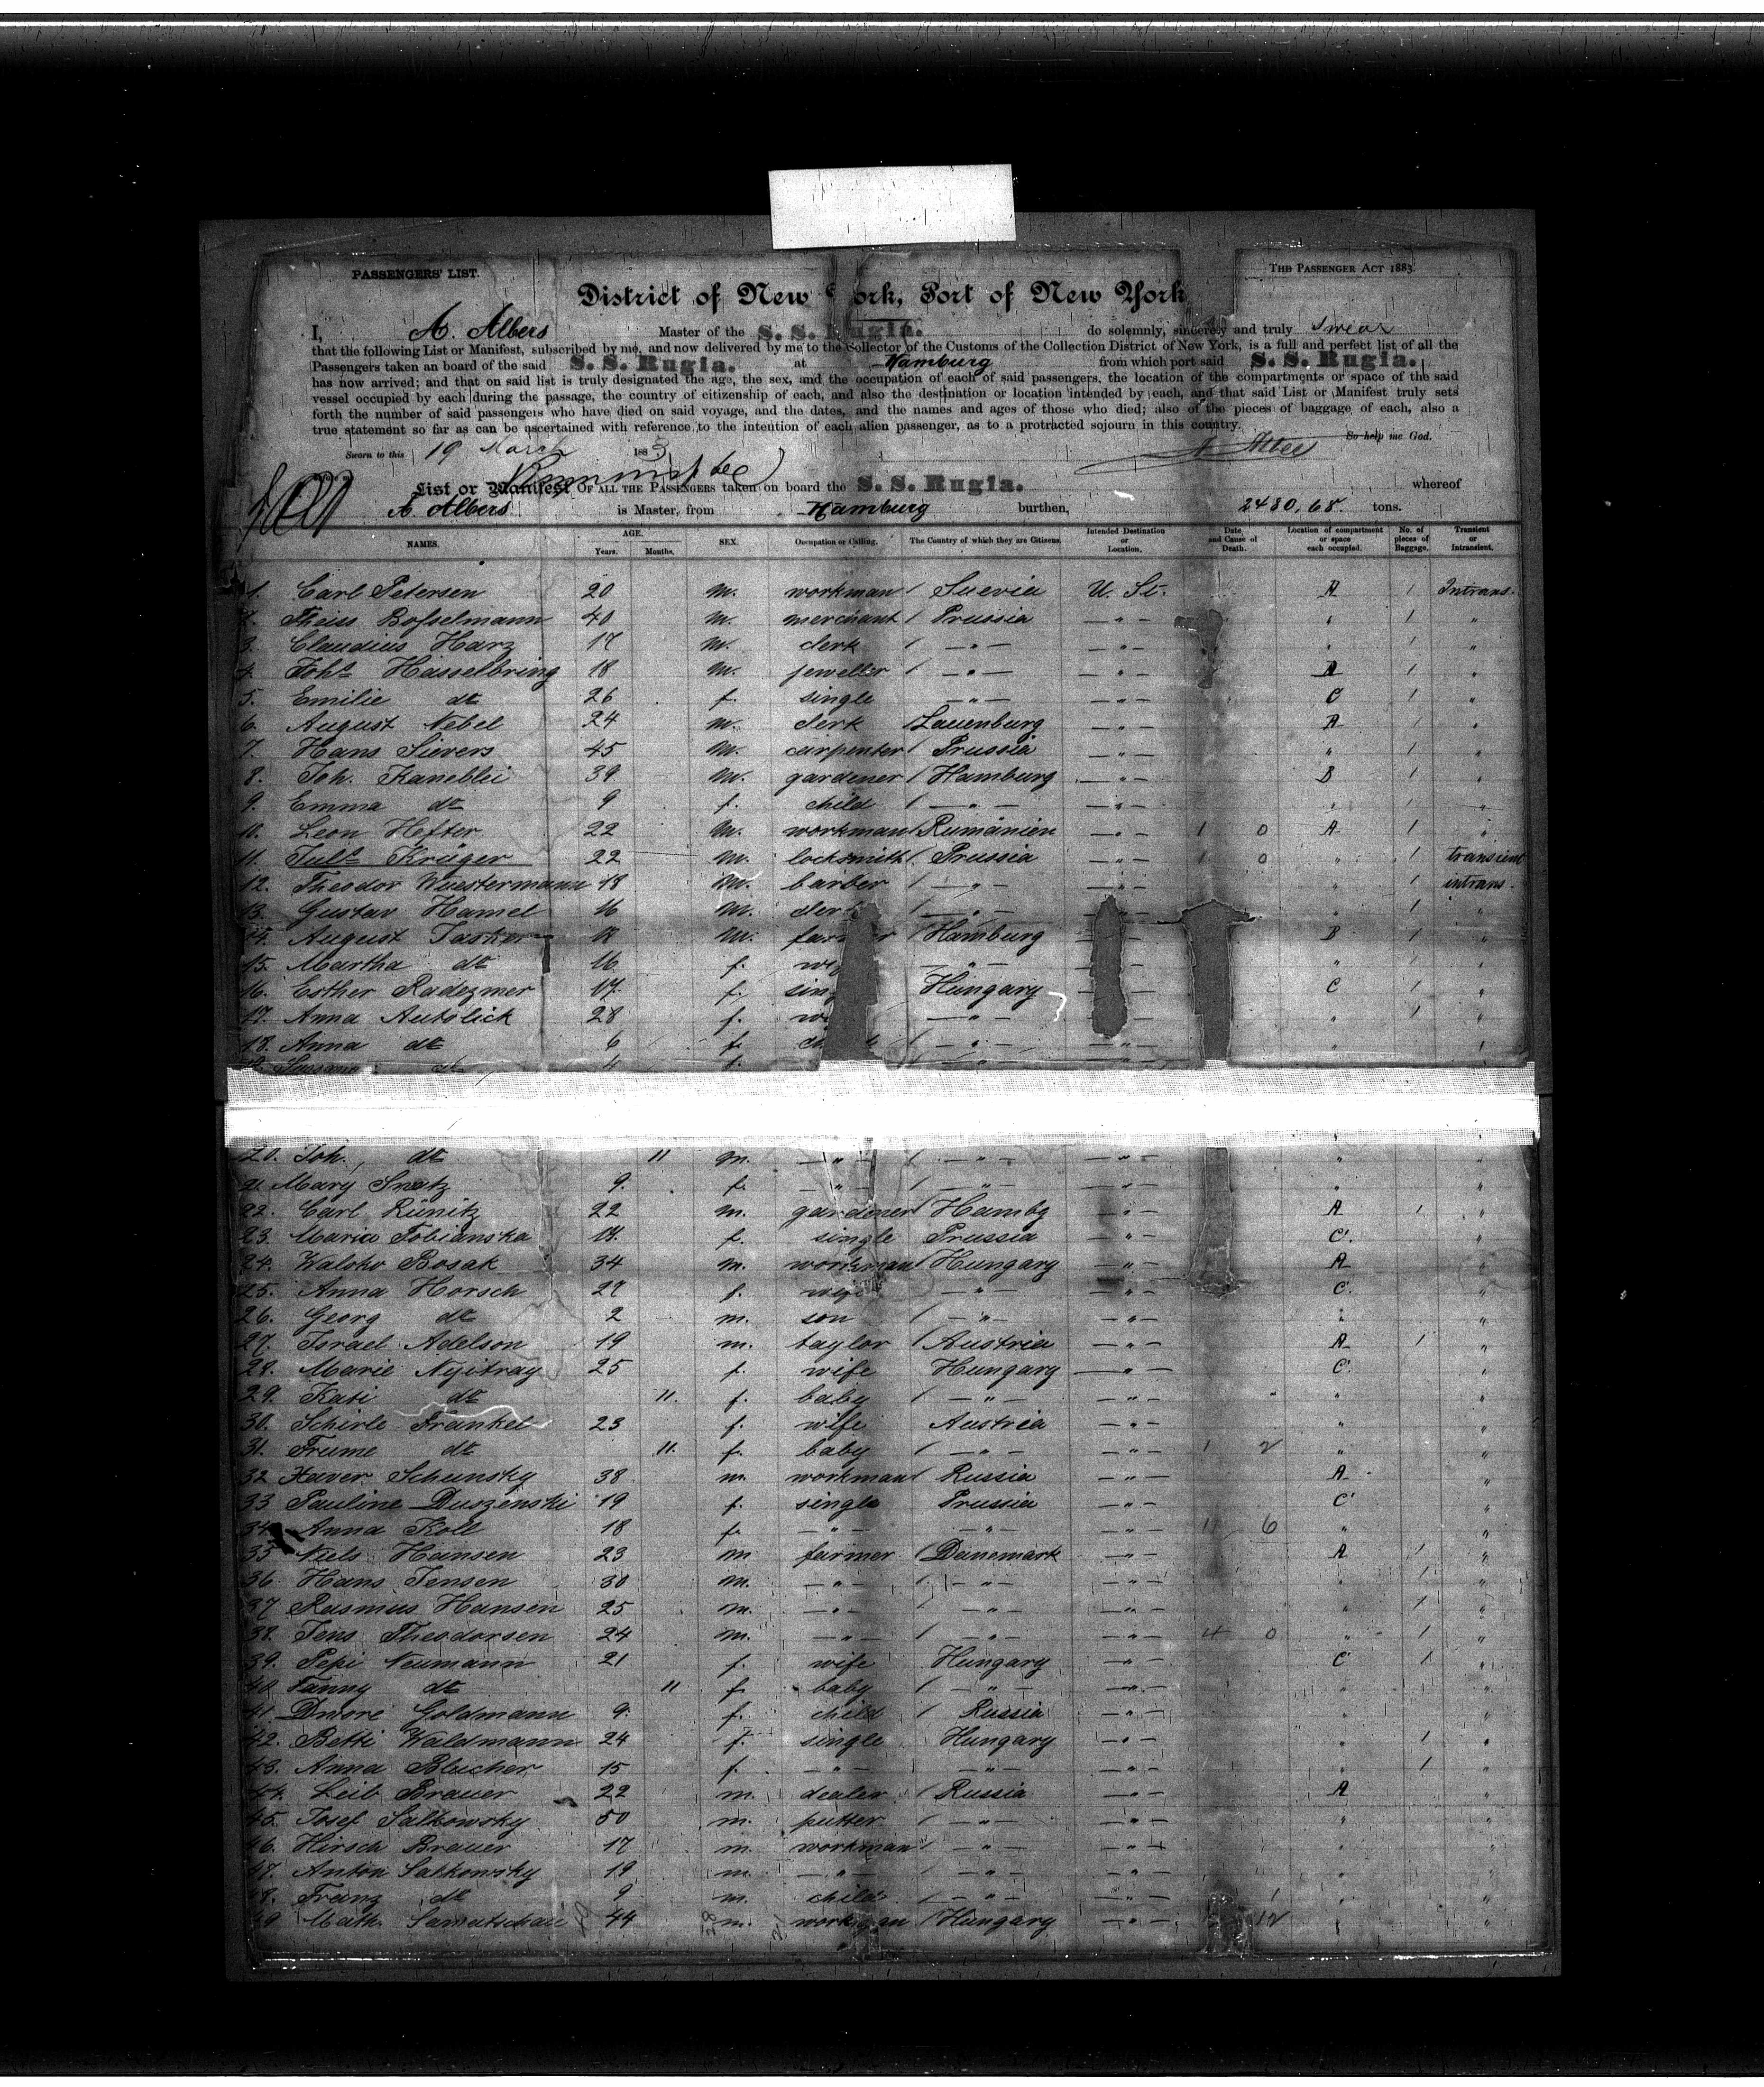 PASSENGERS' LIST.
THE PASSENGER ACT 1883.
District of New York, Port of New York
I, A. Albers Master of the S. S. Rugia. do solemnly, sincerely and truly swear
that the following List or Manifest, subscribed by me, and now delivered by me to the Collector of the Customs of the Collection District of New York, is a full and perfect list of all the
Passengers taken an board of the said S. S. Rugia. at Hamburg from which port said S. S. Rugia.
has now arrived; and that on said list is truly designated the age, the sex, and the occupation of each of said passengers, the location of the compartments or space of the said
vessel occupied by each during the passage, the country of citizenship of each, and also the destination or location intended by each, and that said List or Manifest truly sets
forth the number of said passengers who have died on said voyage, and the dates, and the names and ages of those who died; also of the pieces of baggage of each, also a
true statement so far as can be ascertained with reference to the intention of each alien passenger, as to a protracted sojourn in this country.
So help me God.
Sworn to this 19 March 1883
List or Manifest OF ALL THE PASSENGERS taken on board the S. S. Rugia. whereof
A. Albers is Master, from Hamburg burthen, 2480,68 tons.
NAMES. AGE. Years. Months. SEX. Occupation or Calling. The Country of which they are Citizens. Intended Destination or Location. Date and Cause of Death. Location of compartment or space each occupied. No. of pieces of Baggage. Transient or Intransient.
1. Carl Petersen 20 m. workman / Suevia U. St. A 1 Intrans.
2. Theiss Bosselmann 40 m. merchant / Prussia —"— " 1 "
3. Claudius Harz 17 m. clerk / —"— —"— " 1 "
4. Johs Hasselbring 18 m. jeweller / —"— —"— A 1 "
5. Emilie do 26 f. single —"— —"— C 1 "
6. August Nebel 24 m. clerk / Lauenburg —"— A 1 "
7. Hans Sievers 45 m. carpenter / Prussia —"— " 1 "
8. Joh. Kaneblei 39 m. gardener / Hamburg —"— B 1 "
9. Emma do 9 f. child / —"— —"— " "
10. Leon Hefter 22 m. workman / Rumänien —"— 1 0 A 1 "
11. Juls Krüger 22 m. locksmith / Prussia —"— 1 0 " 1 transient
12. Theodor Wuestermann 18 m. barber / —"— —"— " 1 intrans.
13. Gustav Hamel 16 m. / —"— " 1 "
14. August 18 m. farmer / Hamburg B 1 "
15. Martha do 16 f. —"— " 1 "
16. Esther Radezmer 17 f. Hungary C 1 "
17. Anna Autolick 28 f. —"— " 1 "
18. Anna do 6 f. / —"— —"— " "
20. Joh. do 11 m. —"— / —"— —"— " "
21. Mary Snatz 9. f. —"— / —"— —"— " "
22. Carl Rünitz 22 m. gardener / Hambg —"— A 1 "
23. Maria Tobianska f. single Prussia —"— C. "
24. Bosak 34 m. workman / Hungary —"— A "
25. Anna Horsch 27 f. wife —"— —"— C. "
26. Georg do 2 m. son / —"— —"— " "
27. Israel Adelson 19 m. taylor / Austria —"— A 1 "
28. Marie Nyitray 25 f. wife Hungary —"— C. "
29. Kati do 11. f. baby / —"— —"— " "
30. Schirle Frankel 23 f. wife Austria —"— " "
31. Frume do 11. f. baby / —"— —"— 1 2 " "
32 Xaver Schunsky 38 m. workman / Russia —"— A "
33 Pauline Duszenski 19 f. single Prussia —"— C "
34. Anna Koll 18 f. —"— —"— —"— 11 6 " "
35 Niels Hansen 23 m farmer / Danemark —"— A 1 "
36. Hans Jensen 30 m. —"— / —"— —"— " 1 "
37 Rasmus Hansen 25 m. —"— / —"— —"— " 1 "
38. Jens Theodorsen 24 m. —"— / —"— —"— 4 0 " 1 "
39. Pepi Neumann 21 f. wife Hungary —"— C 1 "
40. Fanny do 11 f. baby / —"— —"— " "
41. Dwore Goldmann 9. f. child / Russia —"— " "
42. Betti Waldmann 24 f. single Hungary —"— " 1 "
43. Anna Blucher 15 f. —"— —"— —"— " 1 "
44. Leib Brauer 22 m. dealer / Russia —"— A "
45. Josef Salkowsky 50 m. putter / —"— —"— " "
46. Hirsch Brauer 17 m. workman / —"— —"— " "
47. Anton Salkowsky 19 m. —"— / —"— —"— " "
48. Franz do 9 m. child / —"— —"— " "
49 Math. 44 m. workman / Hungary —"— 12 " "